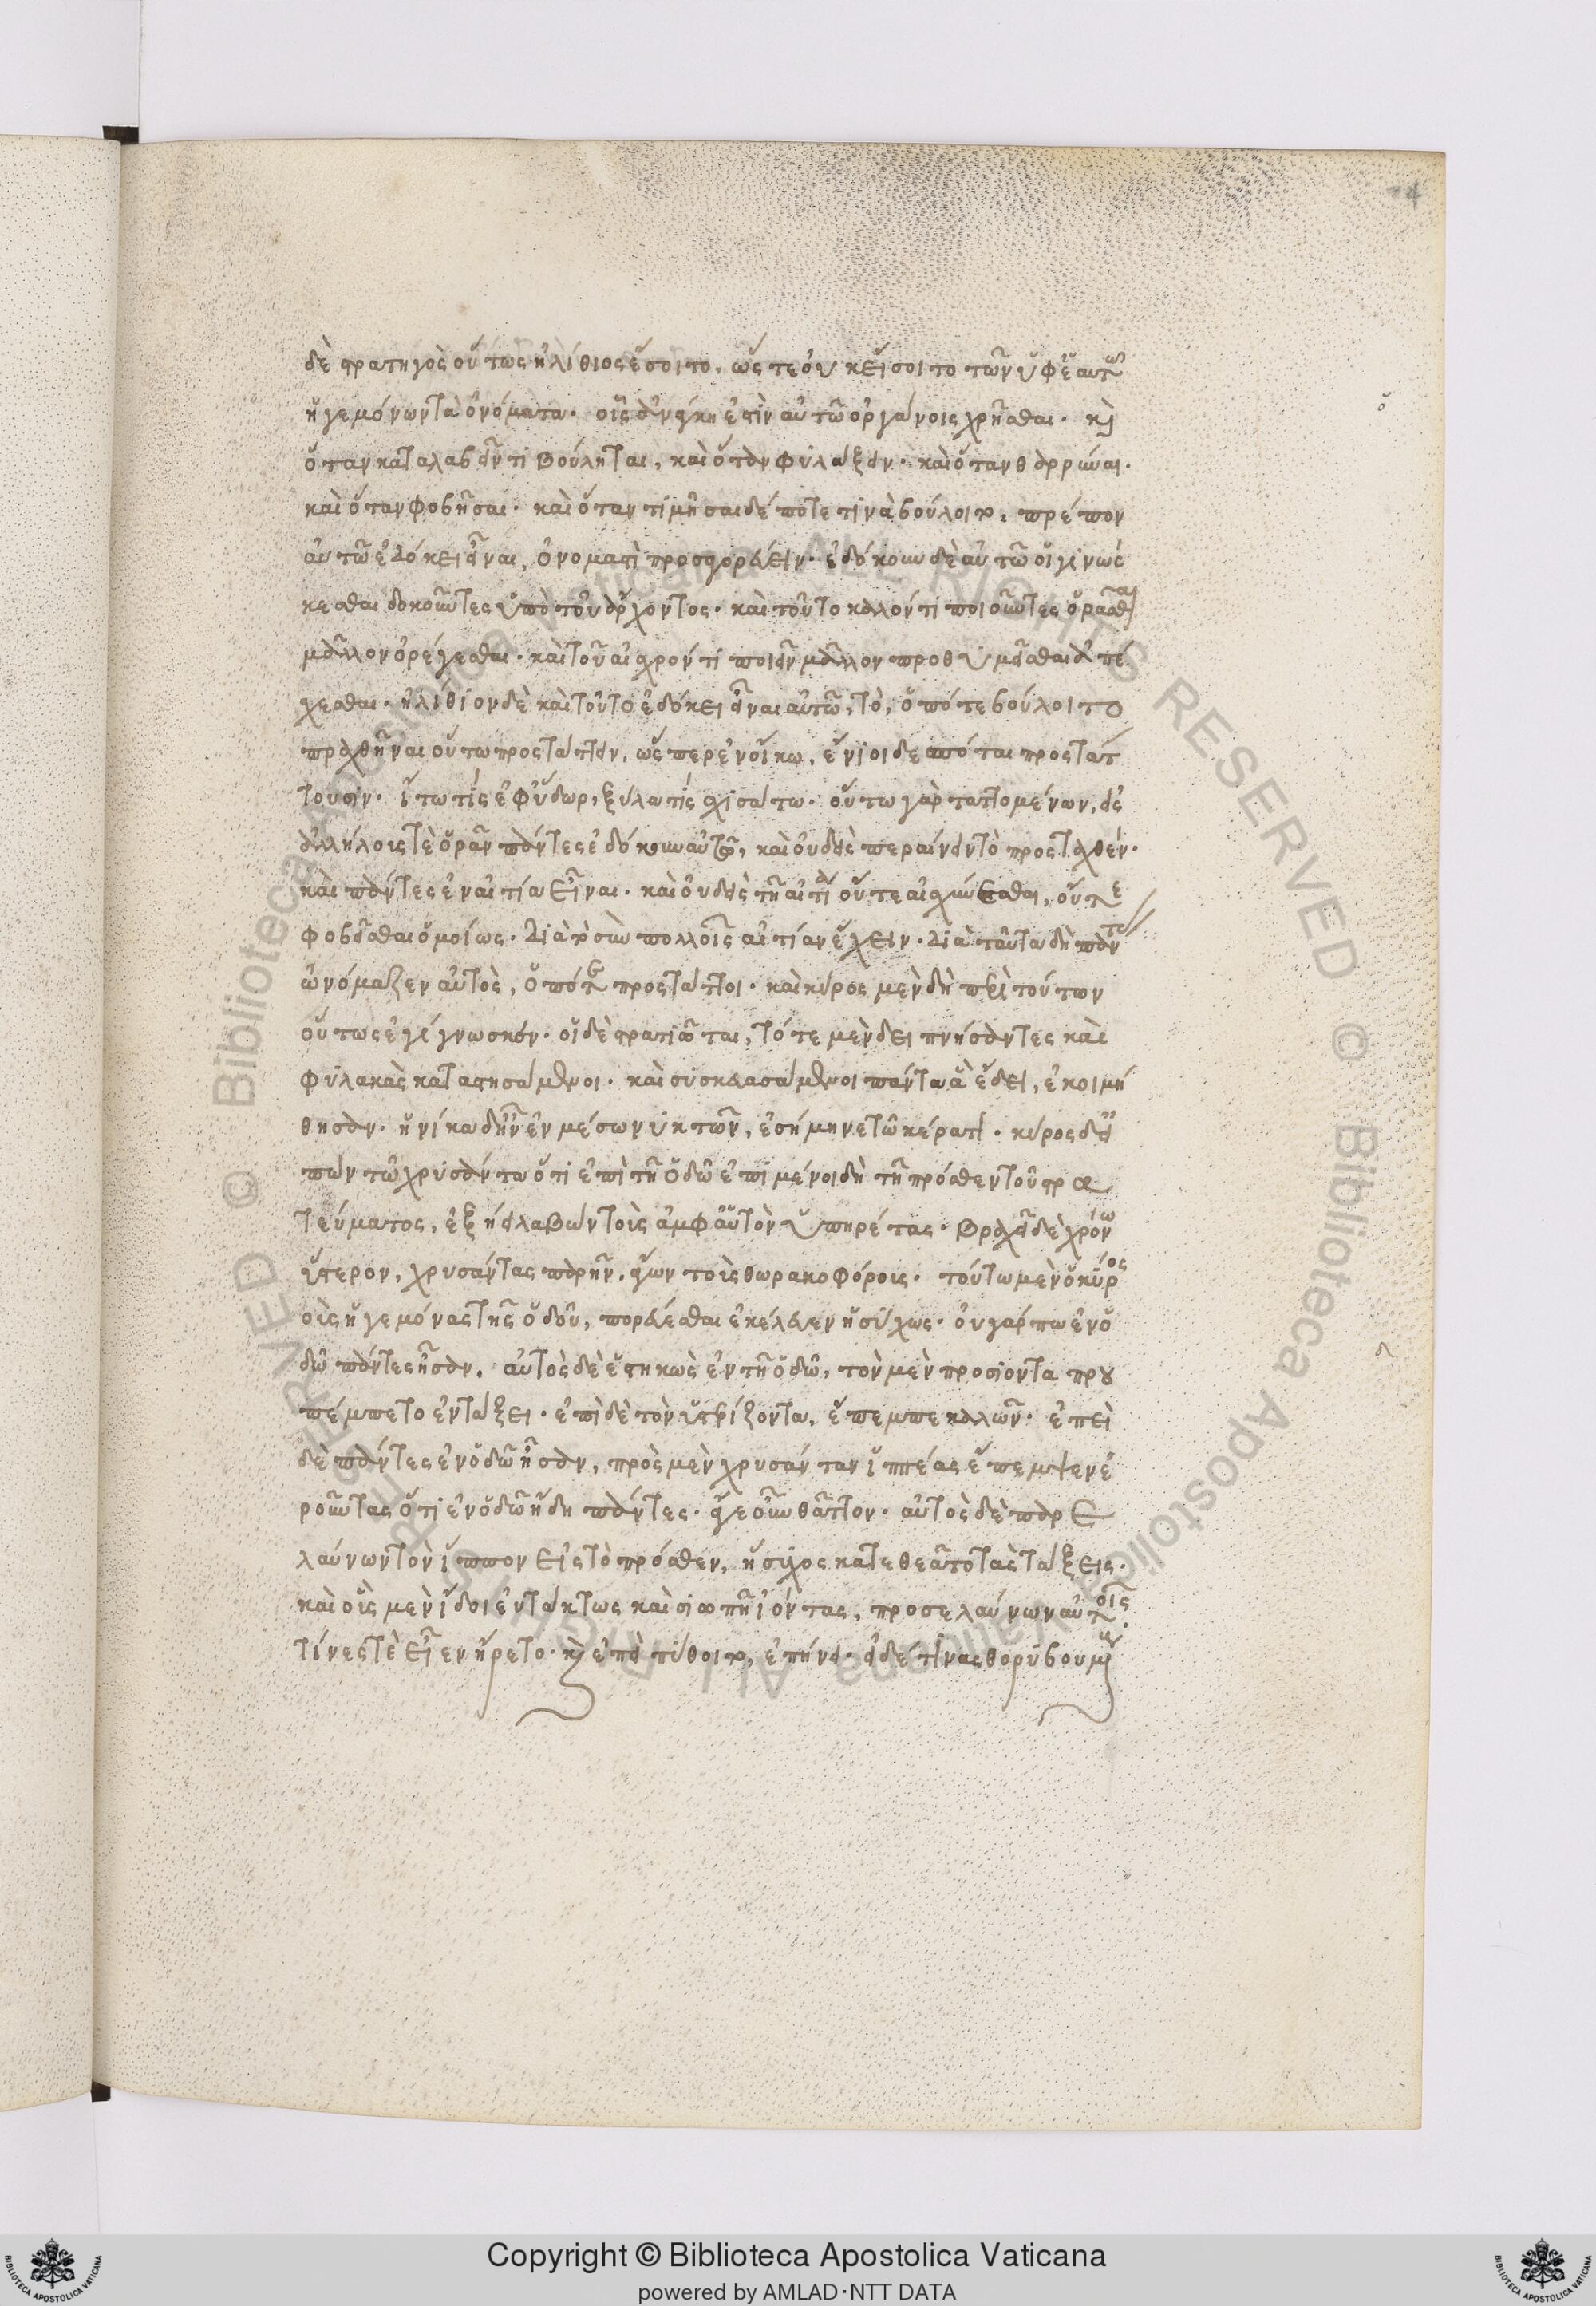 74
δὲ στρατηγὸς οὕτως ἠλίθιος ἔσοιτο, ὥστε οὐκ εἴσοιτο τῶν ὑφ' ἑαυτῶ
ἡγεμόνων τὰ ὀνόματα. οἷς ἀνάγκη ἐστὶν αὐτῶ ὀργάνοις χρῆσθαι. καὶ
ὅταν καταλαβεῖν τι βούληται, καὶ ὅταν φυλάξειν. καὶ ὅταν θαρρύναι.
καὶ ὅταν φοβῆσαι. καὶ ὅταν τιμῆσαι δέ ποτέ τινα βούλοιτο, πρέπον
αὐτῶ ἐδόκει εἶναι, ὀνομαστὶ προσαγορεύειν. ἐδόκουν δὲ αὐτῶ οἱ γινώσ
κεσθαι δοκοῦντες ὑπὸ τοῦ ἄρχοντος. καὶ τοῦτο καλόν τι ποιοῦντες ὁρᾶσθαι
μᾶλλον ὀρέγεσθαι. καὶ τοῦ αἰσχρόν τι ποιεῖν μᾶλλον προθυμεῖσθαι ἀπέ
χεσθαι. ἠλίθιον δὲ καὶ τοῦτο ἐδόκει εἶναι αὐτῶ, τὸ, ὁπότε βούλοιτο
πραχθῆναι οὕτω προστάττειν, ὥσπερ ἐν οἴκω, ἔνιοι δεσπόται προστάτ
τουσιν. ἴτω τίς ἐφ' ὕδωρ, ξύλα τίς σχισάτω. οὕτω γὰρ ταττομένων, εἰς
ἀλλήλοις τὲ ὁρᾶν πάντες ἐδόκουν αὐτῶ, καὶ οὐδεὶς περαίνειν τὸ προσταχθέν.
καὶ πάντες ἐν αἰτία εἶναι. καὶ οὐδεὶς τῆ αἰτία οὔτε αἰσχύνεσθαι, οὔτε
φοβεῖσθαι ὁμοίως. διὰ τὸ σὺν πολλοῖς αἰτίαν ἔχειν. διὰ ταῦτα δὴ πάντας
ὠνόμαζεν αὐτὸς, ὁπότε προστάττοι. καὶ κύρος μὲν δὴ περὶ τούτων
οὕτως ἐγίγνωσκεν. οἱ δὲ στρατιῶται, τότε μὲν δειπνήσαντες καὶ
φυλακὰς καταστησάμενοι. καὶ συσκευασάμενοι πάντα ἃ ἔδει, ἐκοιμή
θησαν. ἡνίκα δ' ἦν ἐν μέσων νυκτῶν, ἐσήμηνε τῶ κέρατι. κύρος δ' εἰ
πὼν τῶ χρυσάντα ὅτι ἐπὶ τῆ ὁδῶ ἐπιμένοι δὴ τῆ πρόσθεν τοῦ στρα
τεύματος, ἐξήει λαβὼν τοὺς ἀμφ' αὑτὸν ὑπηρέτας. βραχεῖ δὲ χρόνω
ὕστερον, χρυσάντας παρῆν, ἄγων τοὺς θωρακοφόρους. τούτω μὲν ὁ κύρος
οὓς ἡγεμόνας τῆς ὁδοῦ, πορεύεσθαι ἐκέλευεν ἡσύχως. οὐ γάρ πω ἐν ὁ
δῶ πάντες ἦσαν. αὐτὸς δὲ ἑστηκὼς ἐν τῆ ὁδῶ, τὸν μὲν προσιόντα πρου
πέμπετο ἐν τάξει. ἐπὶ δὲ τὸν ὑστερίζοντα, ἔπεμπε καλῶν. ἐπεὶ
δὲ πάντες ἐν ὁδῶ ἦσαν, πρὸς μὲν χρυσάνταν ἱππέας ἔπεμψεν ἐ
ροῦντας ὅτι ἐν ὁδῶ ἤδη πάντες. ἄγε οὖν θᾶττον. αὐτὸς δὲ παρε
λαύνων τὸν ἵππον εἰς τὸ πρόσθεν, ἥσυχος κατεθεᾶτο τὰς τάξεις.
καὶ οἳς μὲν ἴδοι εὐτάκτως καὶ σιωπῆ ἰόντας, προσελαύνων αὐτοῖς.
τίνες τὲ εἶεν ἤρετο. καὶ ἐπεὶ πύθοιτο, ἐπήνει. εἰ δέ τινας θορυβουμένους